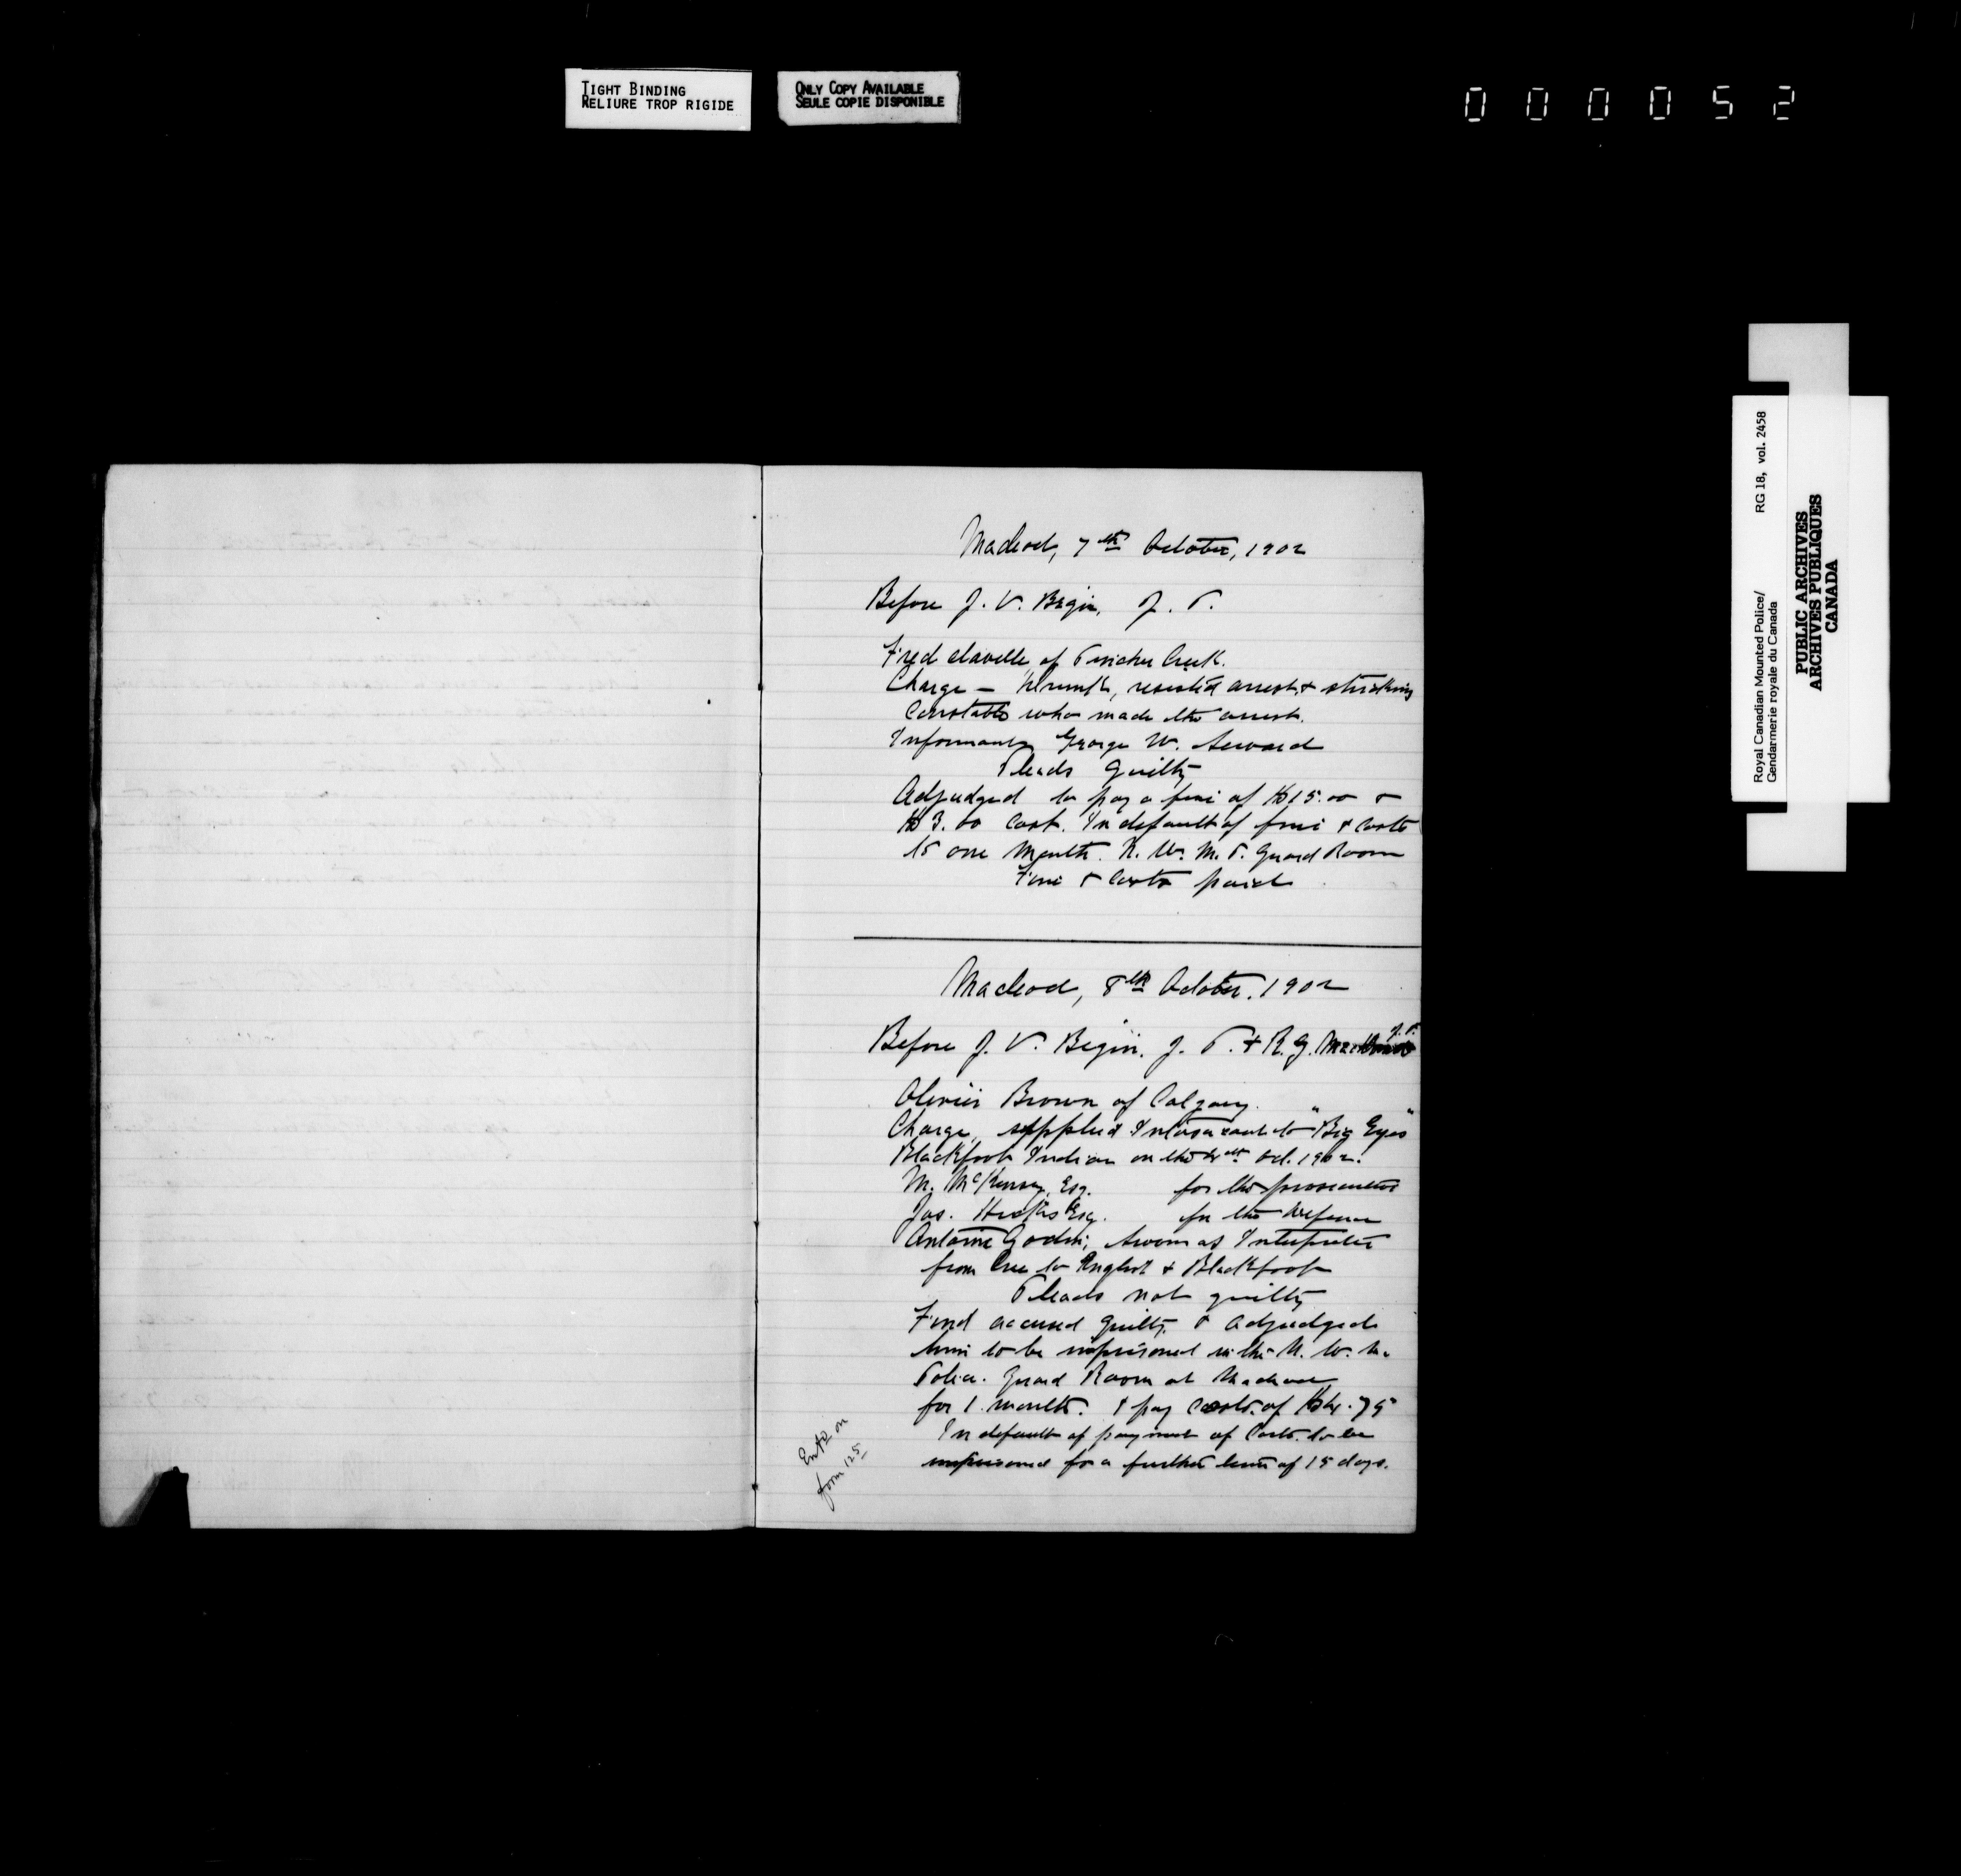 TIGHT BINDING
RELIURE TROP RIGIDE
ONLY COPY AVAILABLE
SEULE COPIE DISPONIBLE
000052
Royal Canadian Mounted Police/ RG 18, vol. 2458
Gendarmerie royale du Canada
PUBLIC ARCHIVES
ARCHIVES PUBLIQUES
CANADA
Macleod, 7th October, 1902
Before J. V. Begin, J. P.
Fred Lavelle of Pincher Creek.
Charge — drunk, resisted arrest & striking
Constable who made the arrest.
Informant George W. Seward
Pleads Guilty
Adjudged to pay a fine of $15.00 &
$3.00 Cost. In default of fine & Costs
to one Month. N. W. M. P. Guard Room
Fine & Costs paid
Macleod, 8th October, 1902
Before J. V. Begin, J. P. & R. G. J. P.
Olivier Brown of Calgary.
Charge, supplied Intoxicant to "Big Eyes"
Blackfoot Indian on the 4th Oct. 1902.
M. McKenzie, Esq. for the prosecution
Jas. Hicks Esq. for the Defence
Antoine Godin, Sworn as Interpreter
from Cree to English & Blackfoot
Pleads not guilty
Find accused guilty & adjudged
him to be imprisoned in the N. W. M.
Police. Guard Room at Macleod
for 1 month. & pay costs of $4.75
In default of payment of Costs. to be
imprisoned for a further term of 15 days.
Entd on
form 125